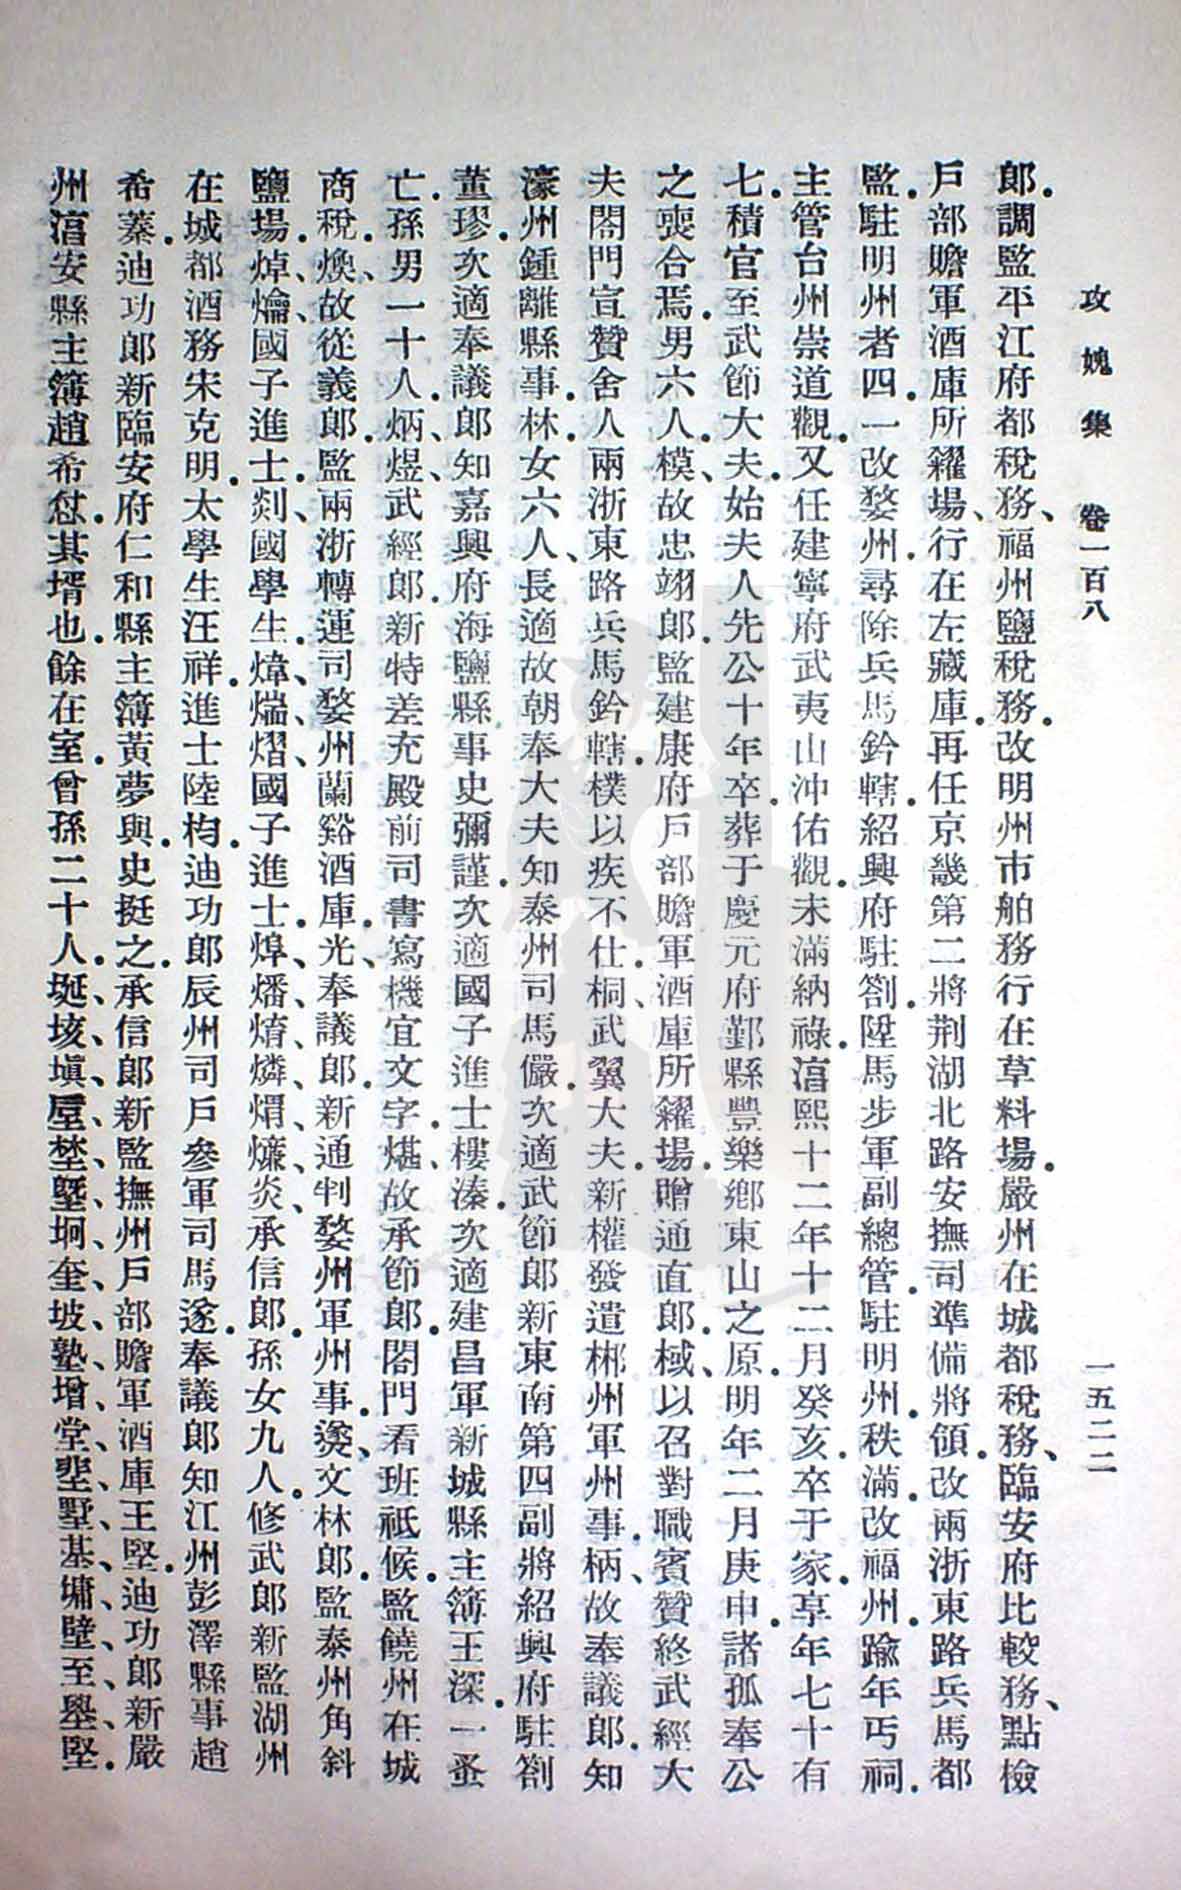 攻媿集 卷一百八 一五二二
郎.調監平江府都稅務、福州鹽稅務.改明州市舶務行在草料場.嚴州在城都稅務、臨安府比較務、點檢
戶部贍軍酒庫所糴場、行在左藏庫.再任京畿第二將荆湖北路安撫司準備將領.改兩浙東路兵馬都
監.駐明州者四.一改婺州.尋除兵馬鈐轄.紹興府駐劄.陞馬步軍副總管.駐明州.秩滿.改福州.踰年丐祠.
主管台州崇道觀.又任建寧府武夷山沖佑觀.未滿納祿.淳熙十二年十二月癸亥.卒于家.享年七十有
七.積官至武節大夫.始夫人先公十年卒.葬于慶元府鄞縣豐樂鄉東山之原.明年二月庚申.諸孤奉公
之喪合焉.男六人.模、故忠翊郎.監建康府戶部贍軍酒庫所糴場.贈通直郎.棫、以召對職賓贊終武經大
夫閤門宣贊舍人兩浙東路兵馬鈐轄.樸以疾不仕.桐、武翼大夫.新權發遣郴州軍州事.柄、故奉議郎.知
濠州鍾離縣事.林.女六人、長適故朝奉大夫知泰州司馬儼.次適武節郎新東南第四副將紹興府駐劄
董璆.次適奉議郎知嘉興府海鹽縣事史彌謹.次適國子進士樓溱.次適建昌軍新城縣主簿王深.一蚤
亡.孫男一十人.炳、煜、武經郎.新特差充殿前司書寫機宜文字.煁、故承節郎.閤門看班祗候.監饒州在城
商稅.煥、故從義郎.監兩浙轉運司婺州蘭谿酒庫.光、奉議郎.新通判婺州軍州事.燧、文林郎.監泰州角斜
鹽場.焯、爚、國子進士.剡、國學生.煒、煓、熠、國子進士.焞、燔、焴、燐、焨、熑、炎、承信郎.孫女九人.修武郎新監湖州
在城都酒務宋克明.太學生汪祥.進士陸枃.迪功郎辰州司戶參軍司馬遂.奉議郎知江州彭澤縣事趙
希蓁.迪功郎新臨安府仁和縣主簿黃夢與.史挺之.承信郎新監撫州戶部贍軍酒庫王堅.迪功郎新嚴
州淳安縣主簿趙希怤.其壻也.餘在室.曾孫二十人.埏、垓、塡、垕、埜、墍、坰、奎、坡、塾、增、堂、墅、基、墉、壁、至、壆、堅.